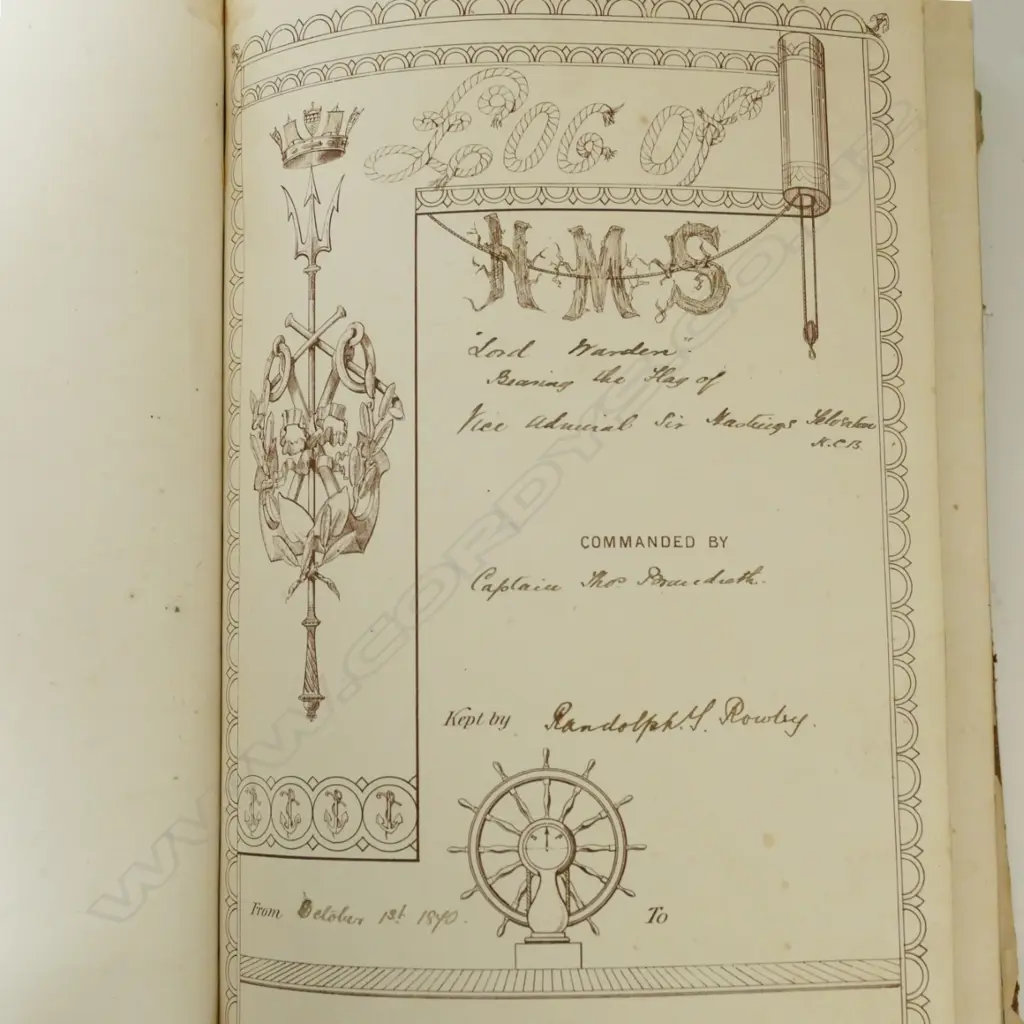 Log Of
H.M.S
"Lord Warden".
Bearing the Flag of
Vice Admiral Sir Hastings Yelverton
K.C.B.
COMMANDED BY
Captain Thos Brandreth.
Kept by Randolph. S. Rowley.
From October 13th 1870. To
WWW.CORDYS.CO.NZ